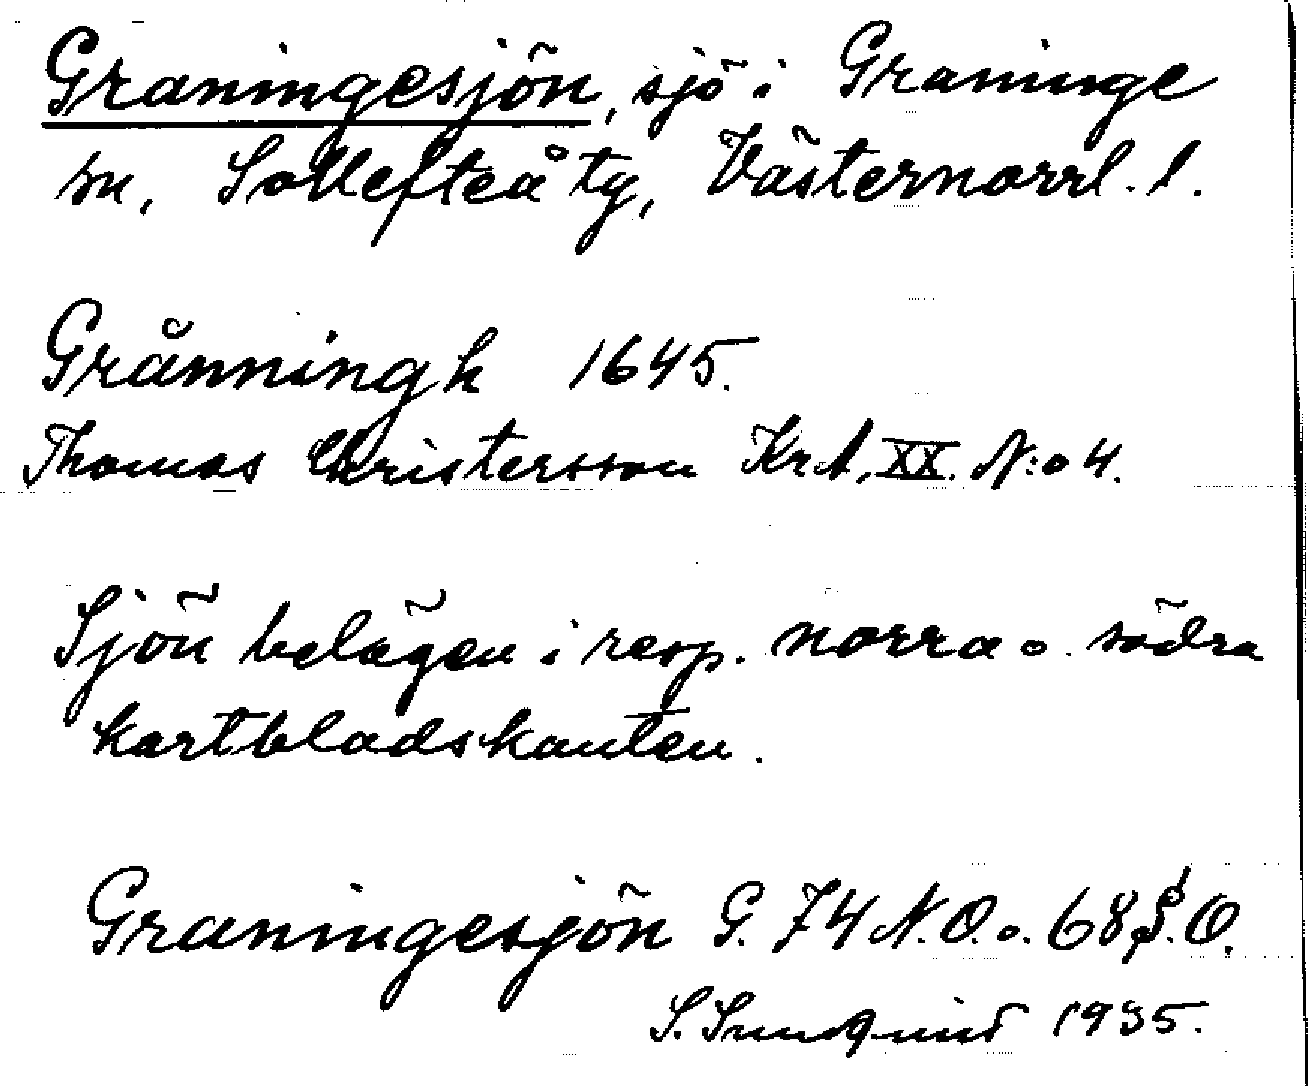 Graningesjön, sjö i Graninge
sn, Sollefteå tg, Västernorrl. l.
Grånningh 1645.
Thomas Christersson KrA, XX. N:o 4.
Sjön belägen i resp. norra o. södra
kartbladskanten.
Graningesjön G. 74 N.O. o. 68 S.O.
S. 1935.